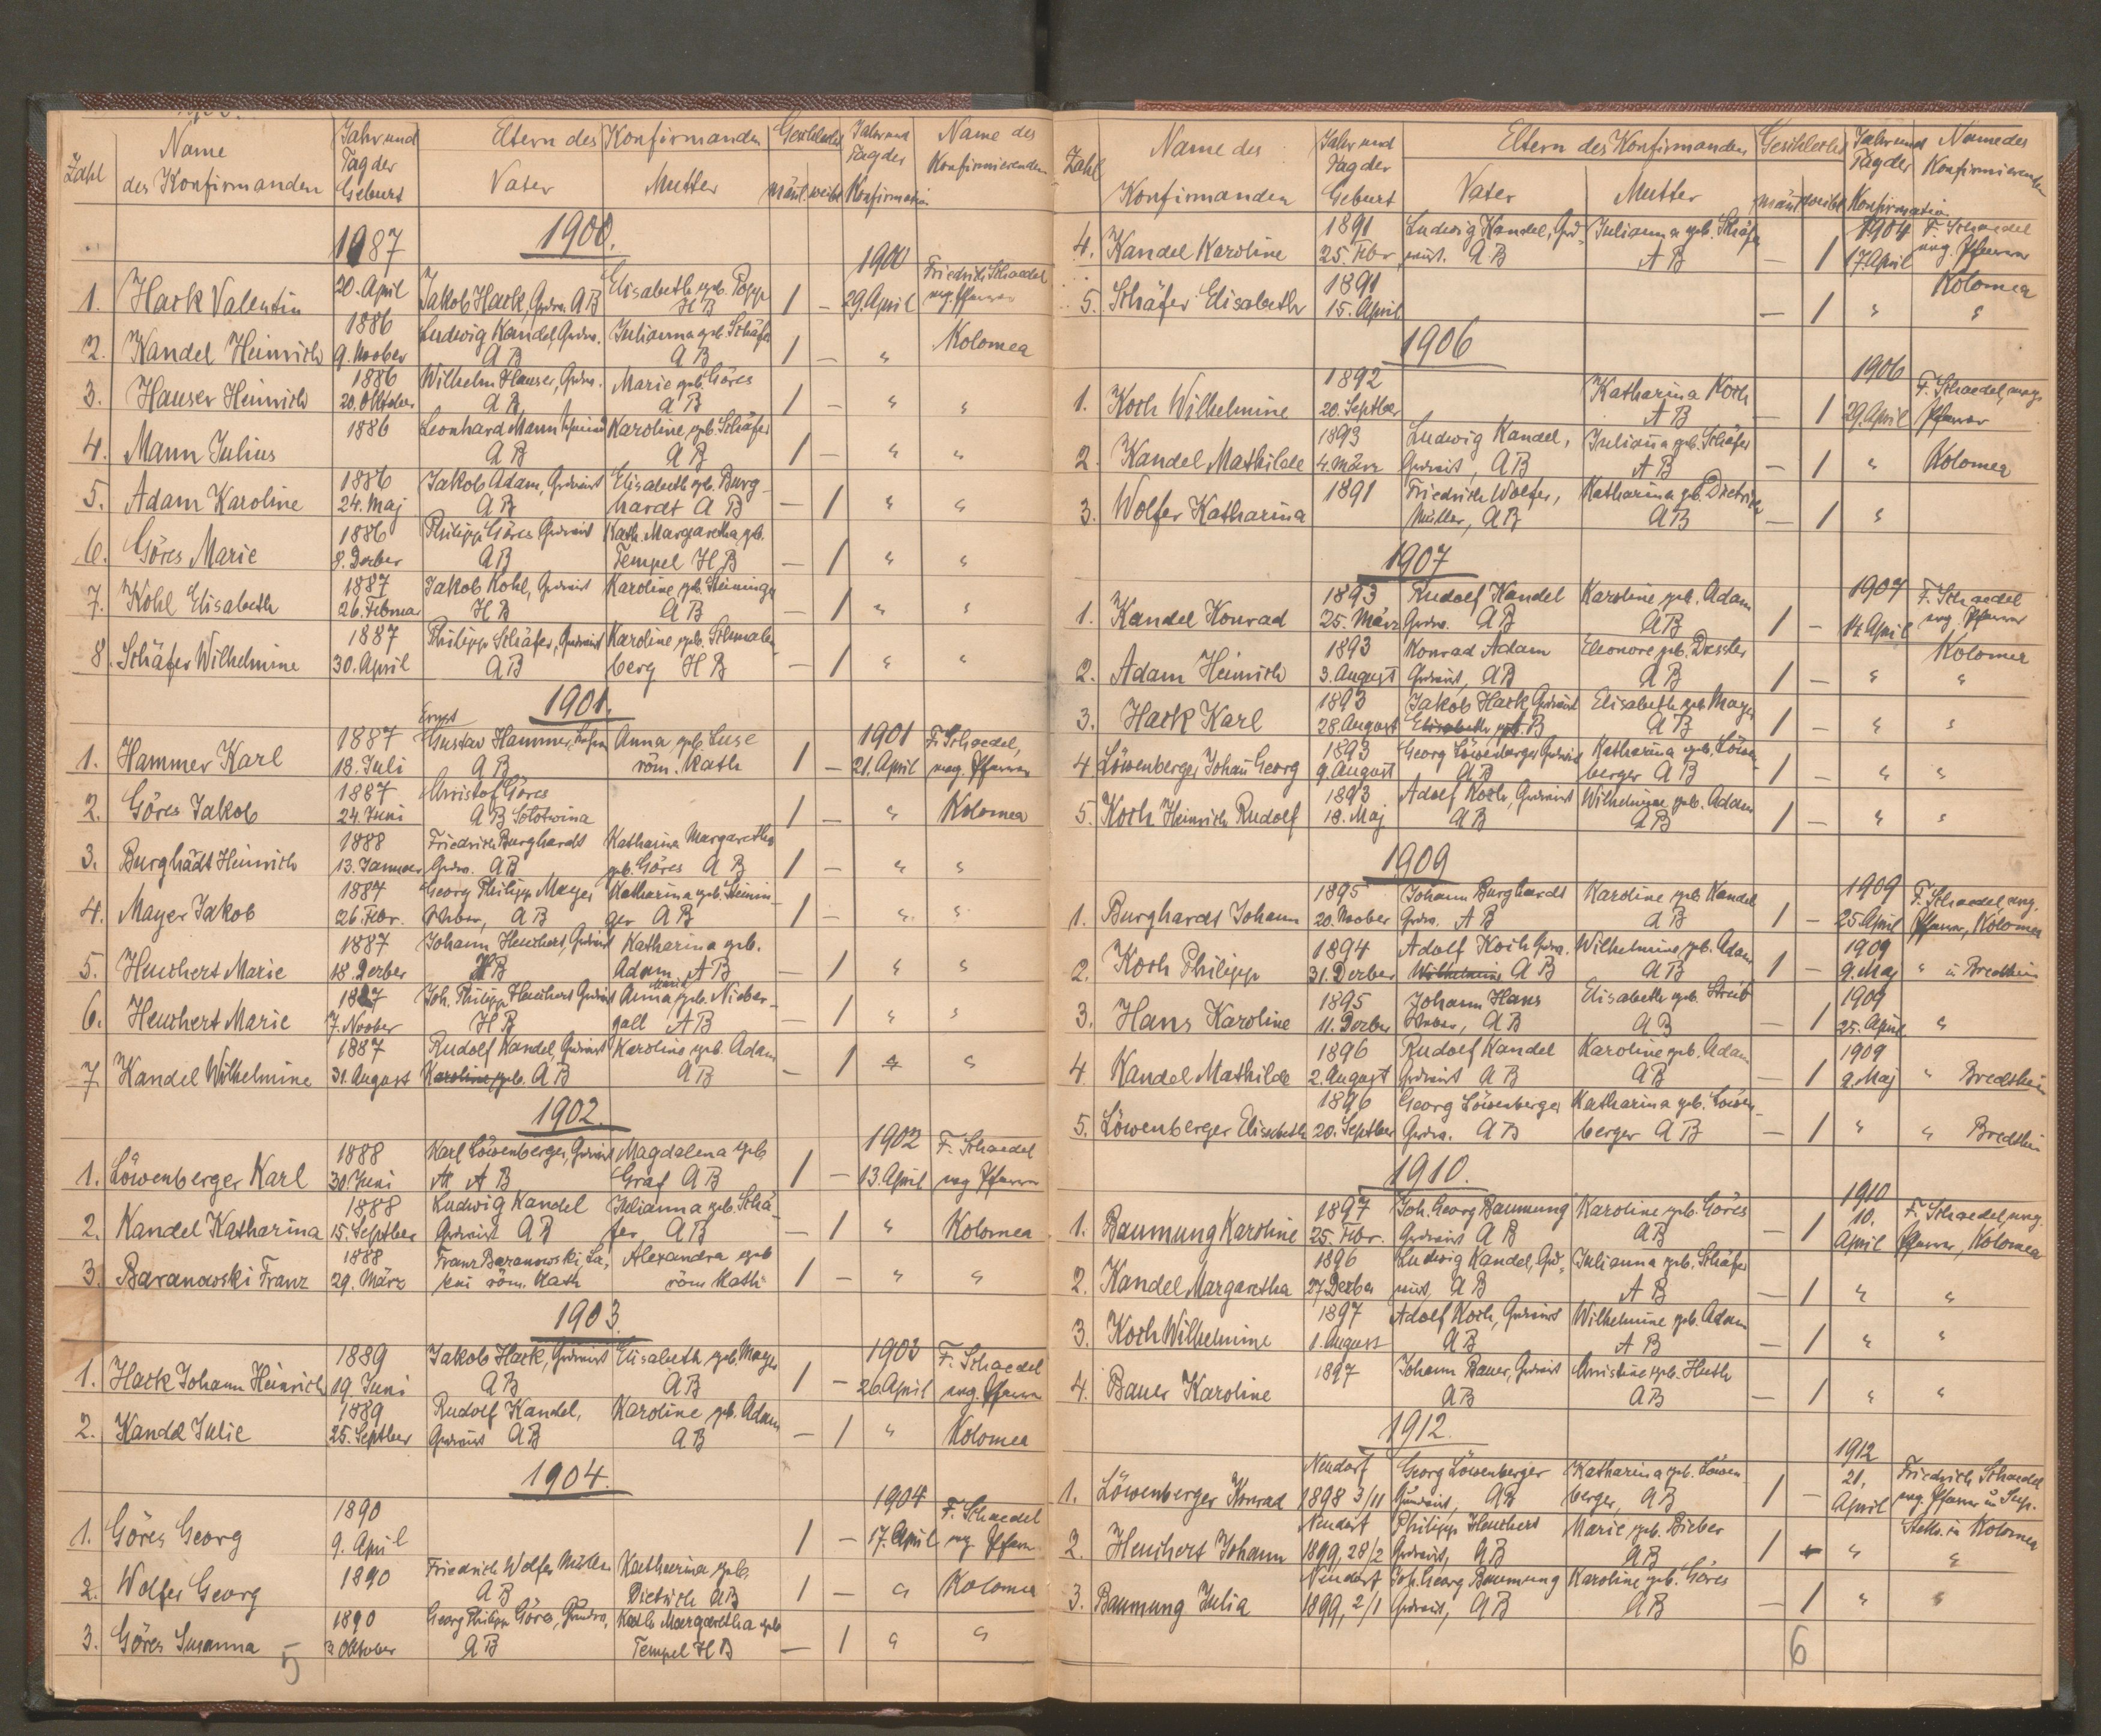 Zahl | Name des Konfirmanden | Jahr und Tag der Geburt | Eltern des Konfirmanden Vater | Mutter | Geschlecht männl. weibl. | Jahr und Tag der Konfirmation | Name des Konfirmierenden
1900.
1. Hack Valentin | 1887 20. April | Jakob Hack, Grdw. AB | Elisabeth geb. Popp HB | 1 | – | 1900 29. April | Friedrich Schaedel evg. Pfarrer
2. Kandel Heinrich | 1886 9. Novber | Ludwig Kandel, Grdw. AB | Julianna geb. Schäfer AB | 1 | – | " | Kolomea
3. Hauser Heinrich | 1886 20. Oktober | Wilhelm Hauser, Grdw. AB | Marie geb. Göres AB | 1 | – | " | "
4. Mann Julius | 1886 | Leonhard Mann AB | Karoline, geb. Schäfer AB | 1 | – | " | "
5. Adam Karoline | 1886 24. Maj | Jakob Adam, Grdwirt AB | Elisabeth geb. Burghardt AB | – | 1 | " | "
6. Göres Marie | 1886 8. Dezber | Philipp Göres Grdwirt AB | Kath. Margaretha geb. Tempel HB | – | 1 | " | "
7. Kohl Elisabeth | 1887 26. Februar | Jakob Kohl, Grdwirt HB | Karoline, geb. Steininger AB | – | 1 | " | "
8. Schäfer Wilhelmine | 1887 30. April | Philipp Schäfer, Grdwirt AB | Karoline, geb. Schmalenberg HB | – | 1 | " | "
1901.
1. Hammer Karl | 1887 18. Juli | Ernst Gustav Hammer, AB | Anna, geb. Luse röm. Kath | 1 | – | 1901 21. April | F. Schaedel, evg. Pfarrer
2. Göres Jakob | 1887 24. Juni | Christof Göres AB Solotwina | | 1 | – | " | Kolomea
3. Burghadt Heinrich | 1888 13. Januar | Friedrich Burghardt Grdw. AB | Katharina Margaretha geb. Göres AB | 1 | – | " | "
4. Mayer Jakob | 1887 26. Febr. | Georg Philipp Mayer AB | Katharina geb. Steininger AB | 1 | – | " | "
5. Heuchert Marie | 1887 18. Dezber | Johann Heuchert, Grdwirt HB | Katharina geb. Adam AB | – | 1 | " | "
6. Heuchert Marie | 1887 7. Novber | Joh. Philipp Heuchert Grdwirt HB | Anna Maria geb. Niebergall AB | – | 1 | " | "
7. Kandel Wilhelmine | 1887 31. August | Rudolf Kandel, Grdwirt Karoline geb. AB | Karoline, geb. Adam AB | – | 1 | " | "
1902.
1. Löwenberger Karl | 1888 30. Juni | Karl Löwenberger, Grdwirt AB | Magdalena geb. Graf AB | 1 | – | 1902 13. April | F. Schaedel evg Pfarrer
2. Kandel Katharina | 1888 15. Septber | Ludwig Kandel Grdwirt AB | Julianna geb. Schäfer AB | – | 1 | " | Kolomea
3. Baranowski Franz | 1888 29. März | Franz Baranowski, röm. Kath | Alexandra geb röm Kath | 1 | – | " | "
1903.
1. Hack Johann Heinrich | 1889 19. Juni | Jakob Hack, Grdwirt AB | Elisabeth geb. Mayer AB | 1 | – | 1903 26. April | F. Schaedel evg. Pfarrer
2. Kandel Julie | 1889 25. Septber | Rudolf Kandel, Grdwirt AB | Karoline geb. Adam AB | – | 1 | " | Kolomea
1904.
1. Göres Georg | 1890 9. April | | | 1 | – | 1904 17. April | F. Schaedel evg. Pfarr
2. Wolfer Georg | 1890 | Friedrich Wolfer Müller AB | Katharina geb. Dietrich AB | 1 | – | " | Kolomea
3. Göres Susanna | 1890 3 Oktober | Georg Philipp Göres, Grundw. AB | Kath Margaretha geb Tempel HB | – | 1 | " | "
5
Zahl | Name des Konfirmanden | Jahr und Tag der Geburt | Eltern des Konfirmanden Vater | Mutter | Geschlecht männl weibl | Jahr und Tag der Konfirmation | Name des Konfirmierenden
4. Kandel Karoline | 1891 25. Febr | Ludwig Kandel, Grdwirt. AB | Julianna geb. Schäfer AB | – | 1 | 1904 17 April | F. Schaedel evg. Pfarrer
5. Schäfer Elisabeth | 1891 15. April | | | – | 1 | " | Kolomea "
1906
1. Koch Wilhelmine | 1892 20. Septber | | Katharina Koch AB | – | 1 | 1906 29. April | F. Schaedel, evg. Pfarrer
2. Kandel Mathilde | 1893 4. März | Ludwig Kandel, Grdwirt, AB | Julianna geb. Schäfer AB | – | 1 | " | Kolomea
3. Wolfer Katharina | 1891 | Friedrich Wolfer, Müller, AB | Katharina geb. Dietrich AB | – | 1 | "
1907
1. Kandel Konrad | 1893 25. März | Rudolf Kandel Grdw. AB | Karoline geb. Adam AB | 1 | – | 1907 14. April | F. Schaedel evg. Pfarrer
2. Adam Heinrich | 1893 3. August | Konrad Adam Grdwirt, AB | Eleonore geb. Dressler AB | 1 | – | " | Kolomea "
3. Hack Karl | 1893 28. August | Jakob Hack Grdwirt Elisabeth geb. AB | Elisabeth geb. Mayer AB | 1 | – | " | "
4 Löwenberger Johann Georg | 1893 9. August | Georg Löwenberger Grdwirt AB | Katharina geb. Löwenberger AB | 1 | – | " | "
5. Koch Heinrich Rudolf | 1893 18. Maj | Adolf Koch, Grdwirt AB | Wilhelmine geb. Adam AB | 1 | – | " | "
1909
1. Burghardt Johann | 1895 20. Novber | Johann Burghardt Grdw. AB | Karoline geb Kandel AB | 1 | – | 1909 25 April | F. Schaedel evg. Pfarrer, Kolomea
2. Koch Philipp | 1894 31. Dezber | Adolf Koch Grdw. Wilhelmine AB | Wilhelmine, geb. Adam AB | 1 | – | 1909 9. Maj | " in Bredtheim
3. Hans Karoline | 1895 11. Dezber | Johann Hans Weber, AB | Elisabeth geb. Streib AB | – | 1 | 1909 25. April | "
4 Kandel Mathilde | 1896 2. August | Rudolf Kandel Grdwirt AB | Karoline geb. Adam AB | – | 1 | 1909 9. Maj | " Bredtheim
5. Löwenberger Elisabeth | 1896 20. Septber | Georg Löwenberger Grdw. AB | Katharina geb. Löwenberger AB | – | 1 | " | " Bredtheim
1910.
1. Baumung Karoline | 1897 25. Febr. | Joh. Georg Baumung Grdwirt AB | Karoline geb. Göres AB | – | 1 | 1910 10. April | F. Schaedel evg. Pfarrer, Kolomea
2. Kandel Margaretha | 1896 27 Dezber | Ludwig Kandel, Grdwirt, AB | Julianna geb. Schäfer AB | – | 1 | " | "
3. Koch Wilhelmine | 1897 1. August | Adolf Koch, Grdwirt AB | Wilhelmine geb. Adam AB | – | 1 | " | "
4. Bauer Karoline | 1897 | Johann Bauer, Grdwirt AB | Christine geb. Huth AB | – | 1 | " | "
1912.
1. Löwenberger Konrad | Neudorf 1898 3/11 | Georg Löwenberger Grundwirt, AB | Katharina geb. Löwenberger, AB | 1 | – | 1912 21. April | Friedrich Schaedel evg. Pfarrer u. Sup.
2. Heuchert Johann | Neudorf 1899, 28/2 | Philipp Heuchert Grdwirt, AB | Marie geb. Bieber AB | 1 | – | " | Stellv. in Kolomea "
3. Baumung Julia | Neudorf 1899, 2/1 | Joh. Georg Baumung Grdwirt, AB | Karoline geb. Göres AB | – | 1 | " | "
6